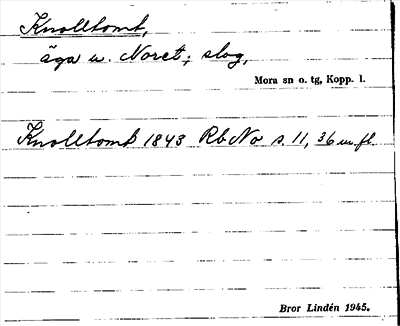 Knolltomt,
äga u. Noret; slog,
Mora sn o. tg, Kopp. l.
Knolltomt 1843 Rb No s. 11, 36 m. fl.
Bror Lindén 1945.